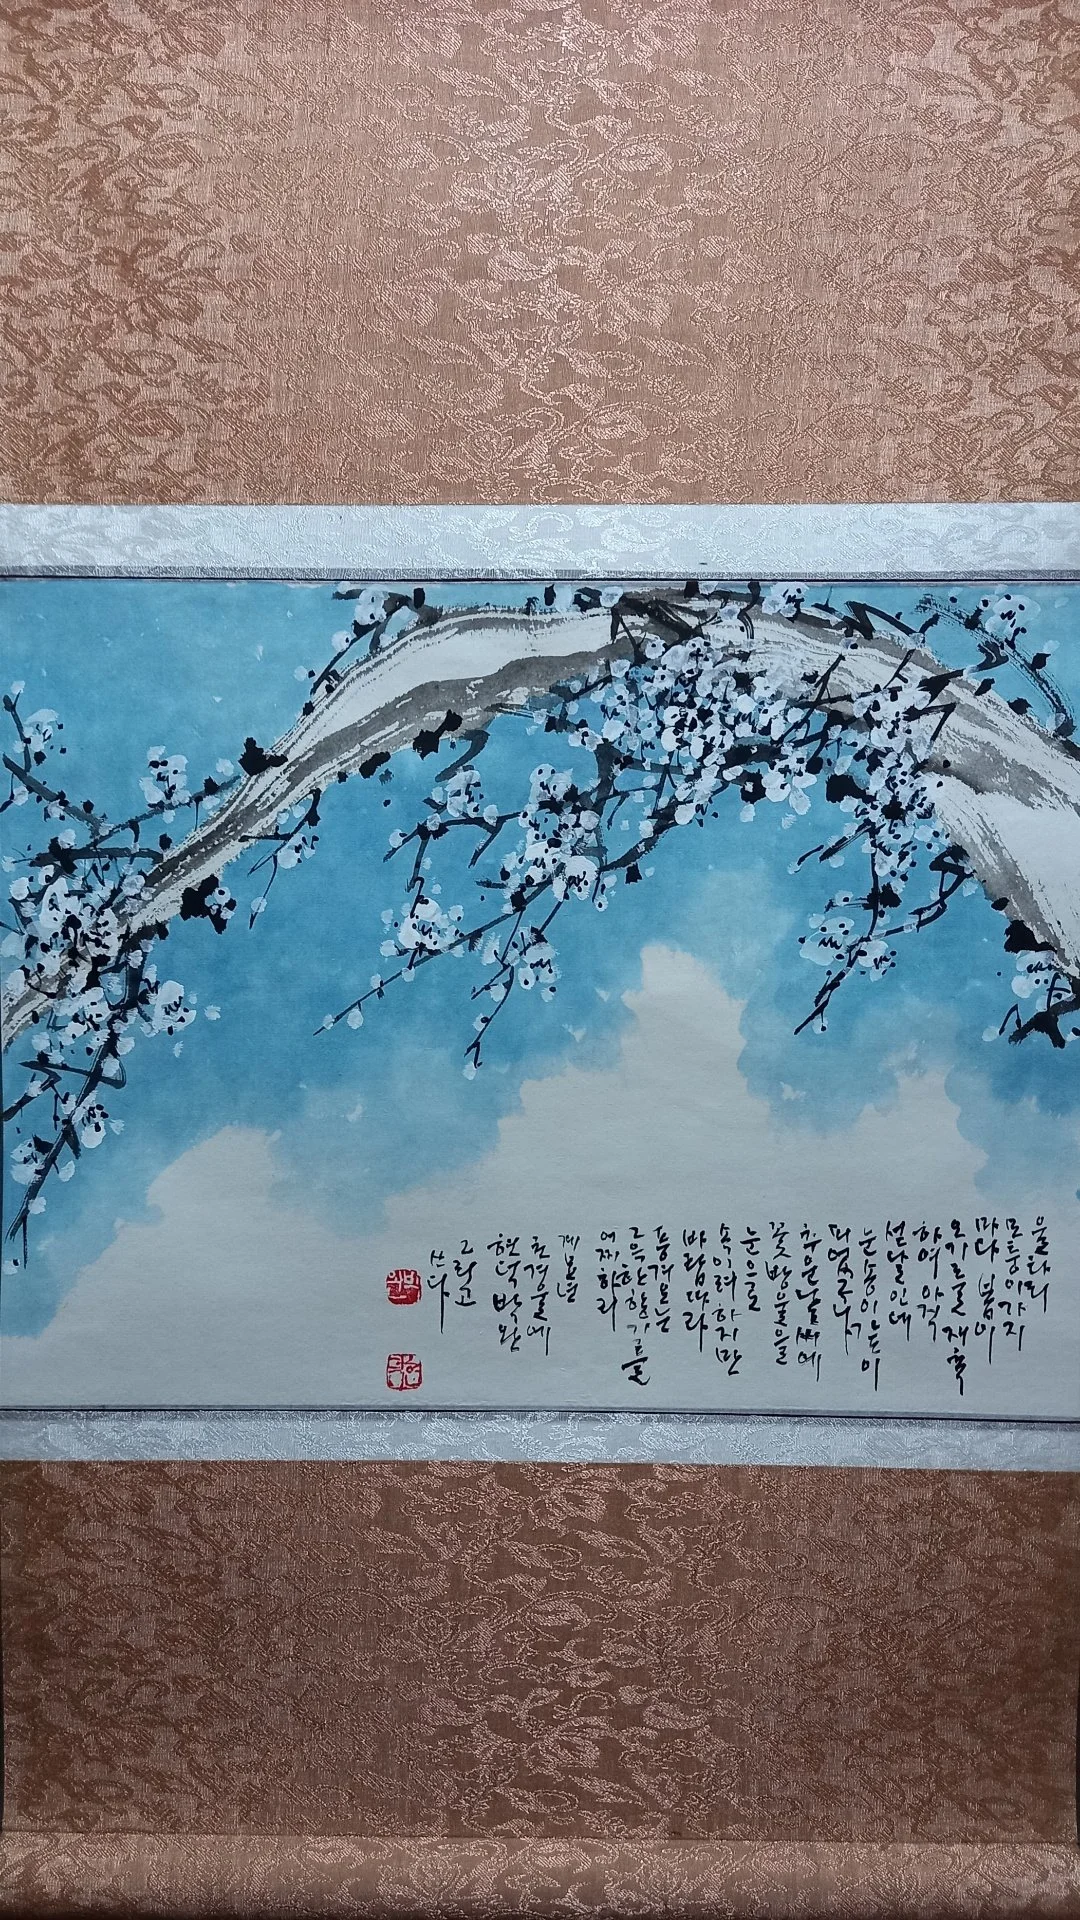 울타리
모퉁이가지
마다 봄이
오기를 재촉
하여 아직
설날인데
눈송이
피었구나
추운날씨에
꽃방울을
속이려하지만
바람따라
풍겨오는
그윽한향기를
어찌하리
계묘년
초겨울에
현덕박완
그리고
쓰다